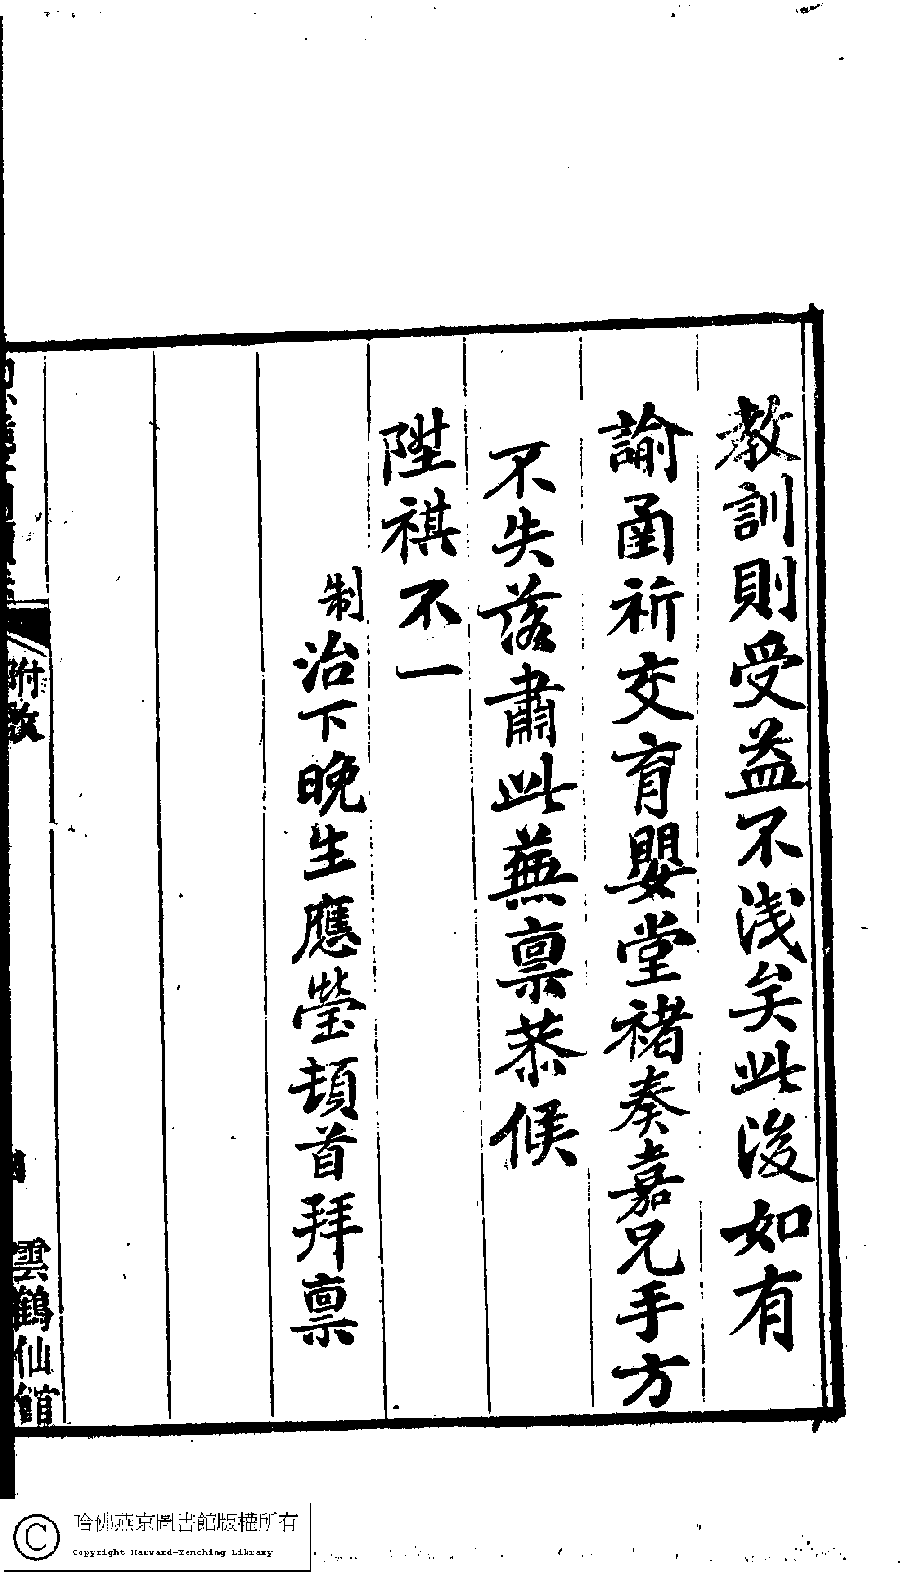 教訓則受益不浅矣此後如有
諭函祈交育嬰堂褚奏嘉兄手方
不失落肅此蕪禀恭候
陞祺不一
制治下晚生應瑩頓首拜禀
附攷
雲鶴仙館
哈佛燕京圖書館版權所有
Copyright Harvard-Yenching Library